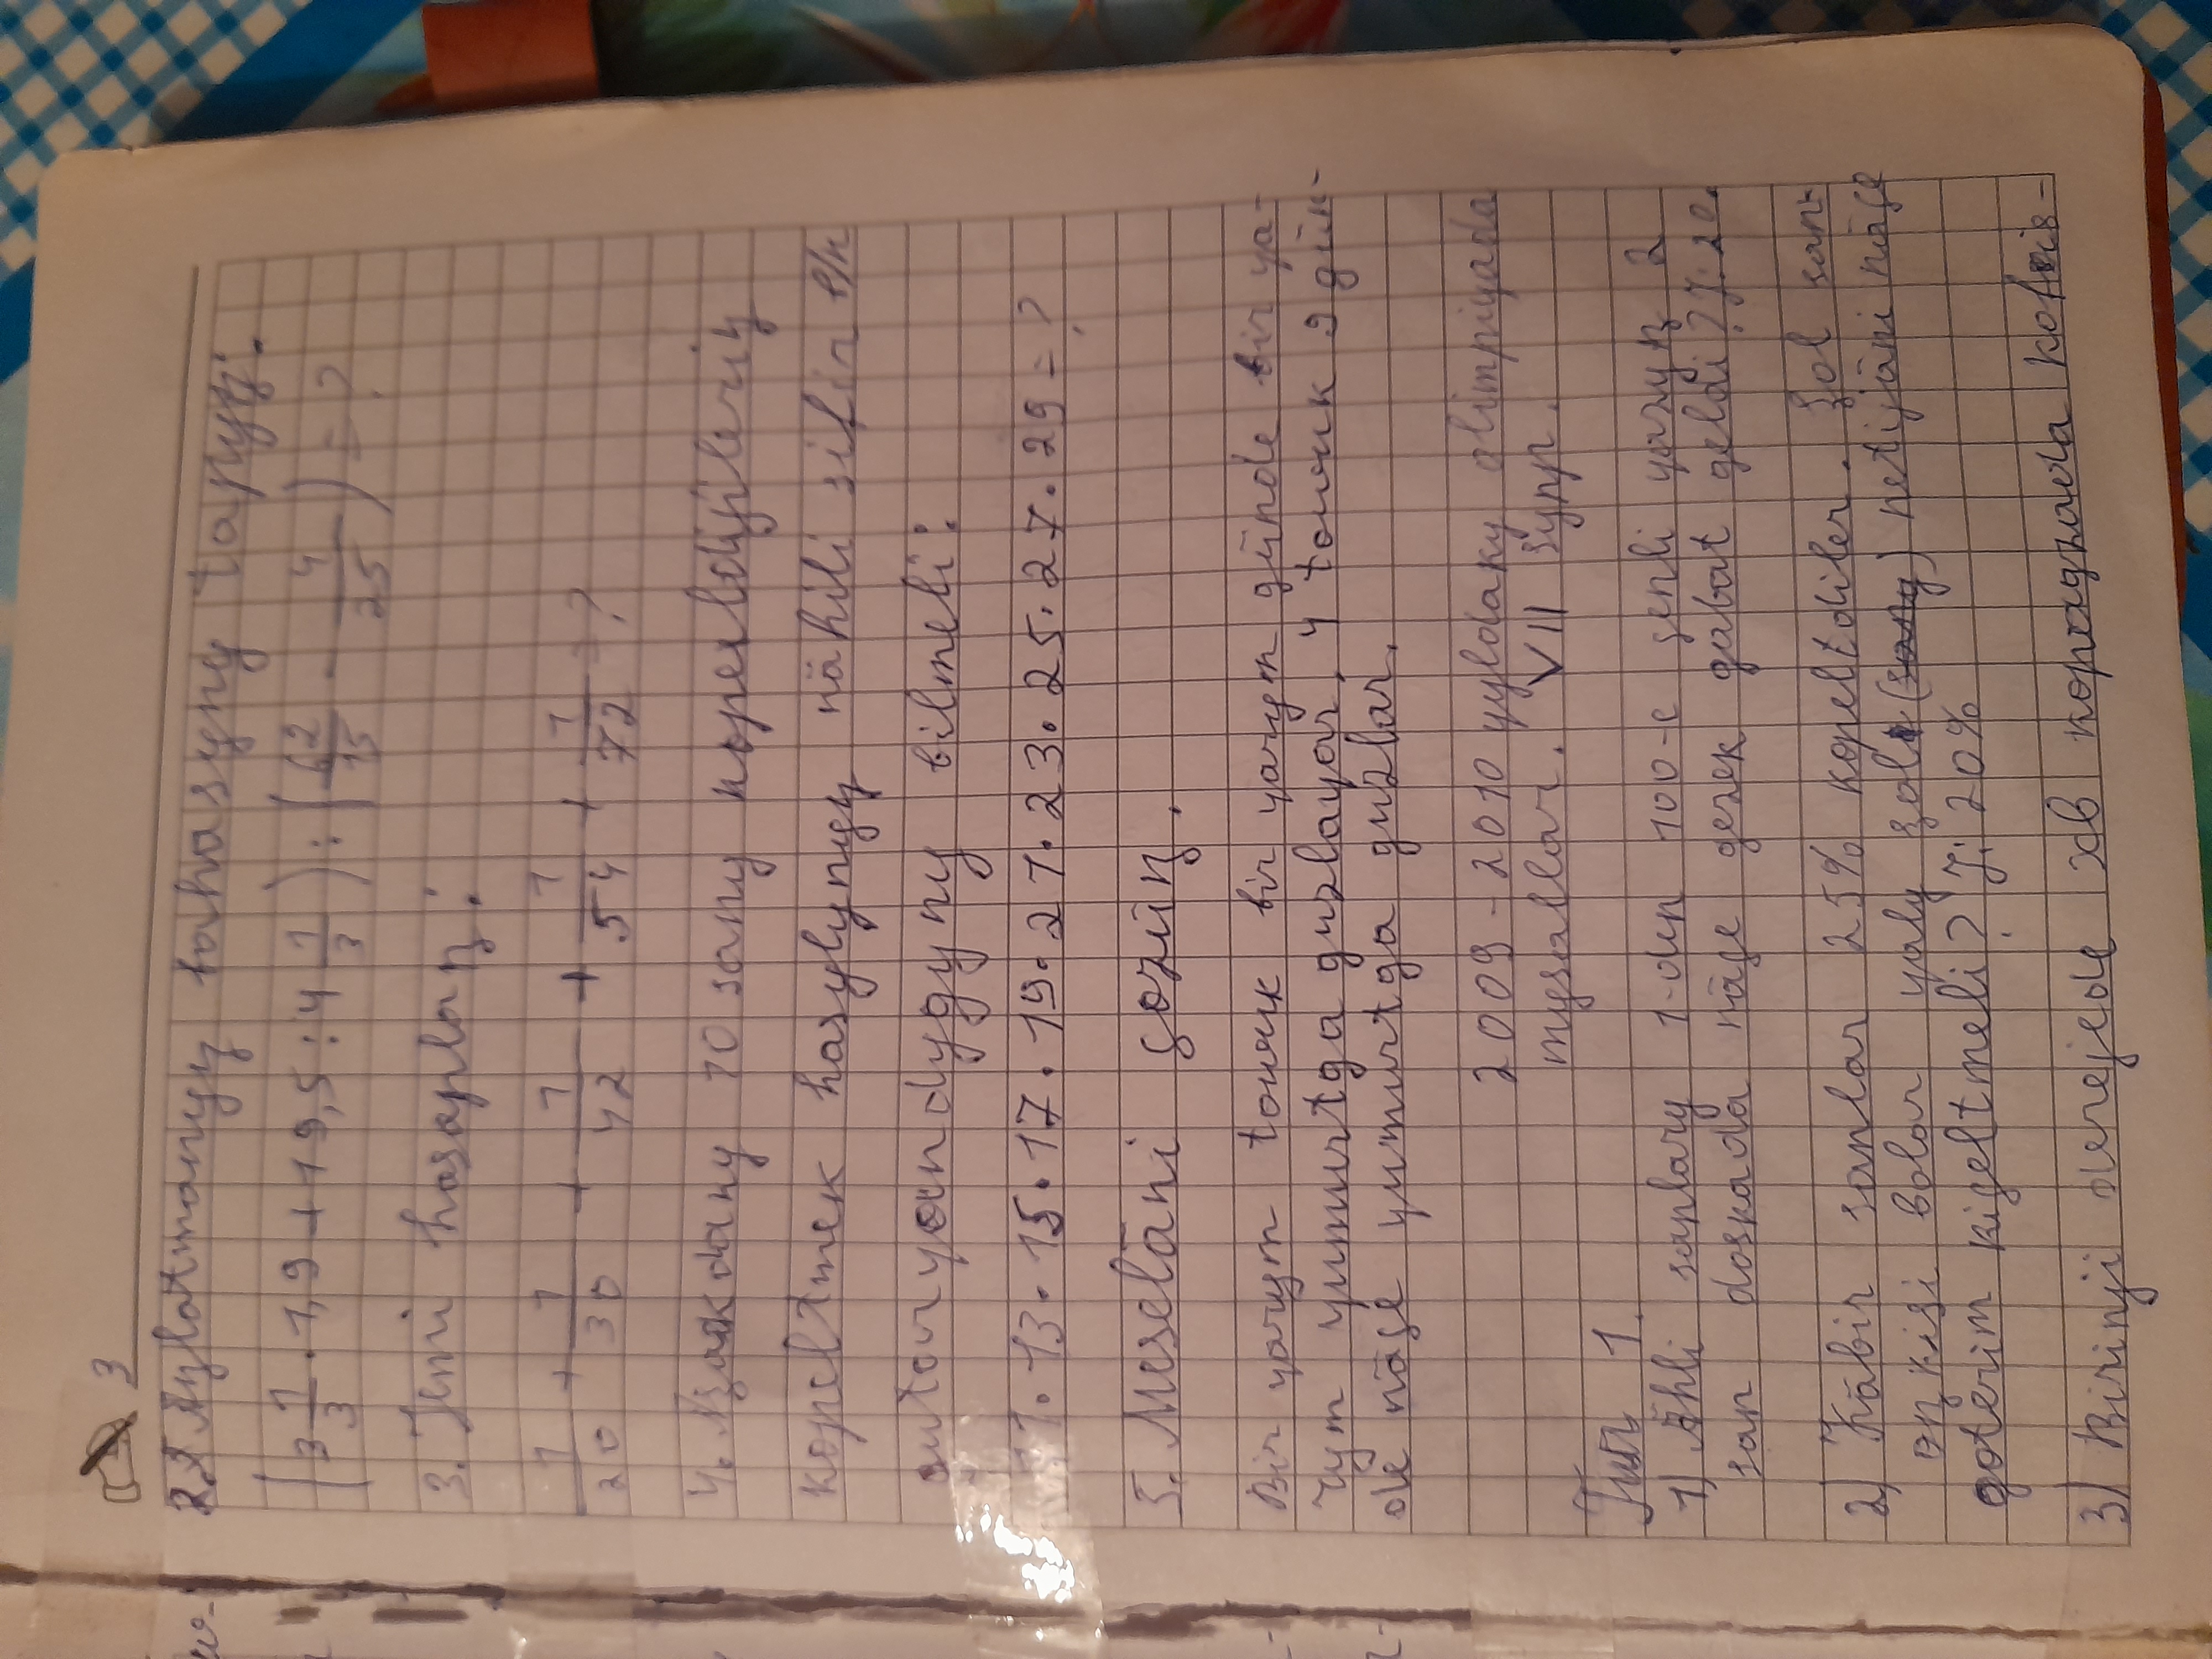 3
2. Aňlatmanyň bahasyny tapyň:
(3 1/3 · 1,9 + 19,5 : 4 1/3) : (62/15 - 4/25) = ?
3. Jemi hasaplaň:
1/20 + 1/30 + 1/42 + 1/54 + 1/72 = ?
4. Aşakdaky 10 sany köpeldijileriň
köpeltmek hasylynyň nähili sifir b/n
gutaryandygyny bilmeli:
11 · 13 · 15 · 17 · 19 · 21 · 23 · 25 · 27 · 29 = ?
5. Meseläni çözüň.
Bir yarym towuk bir yarym günde bir ya-
rym yumurtga guzlayar. 4 towuk 9 gün-
de näçe yumurtga guzlar.
2009-2010 yyldaky olimpiyada
mysallar. VII synp.
Tur 1.
1) Ähli sanlary 1-den 100-e çenli yazyň 2
san doskada näçe gezek gabat geldi? J: 20.
2) Käbir sanlar 25% köpeltdiler. Şol san-
öňkisi bolar yaly şol (sany) netijäni näçe
göterim kiçeltmeli? J: 20%
3) Birinji derejede